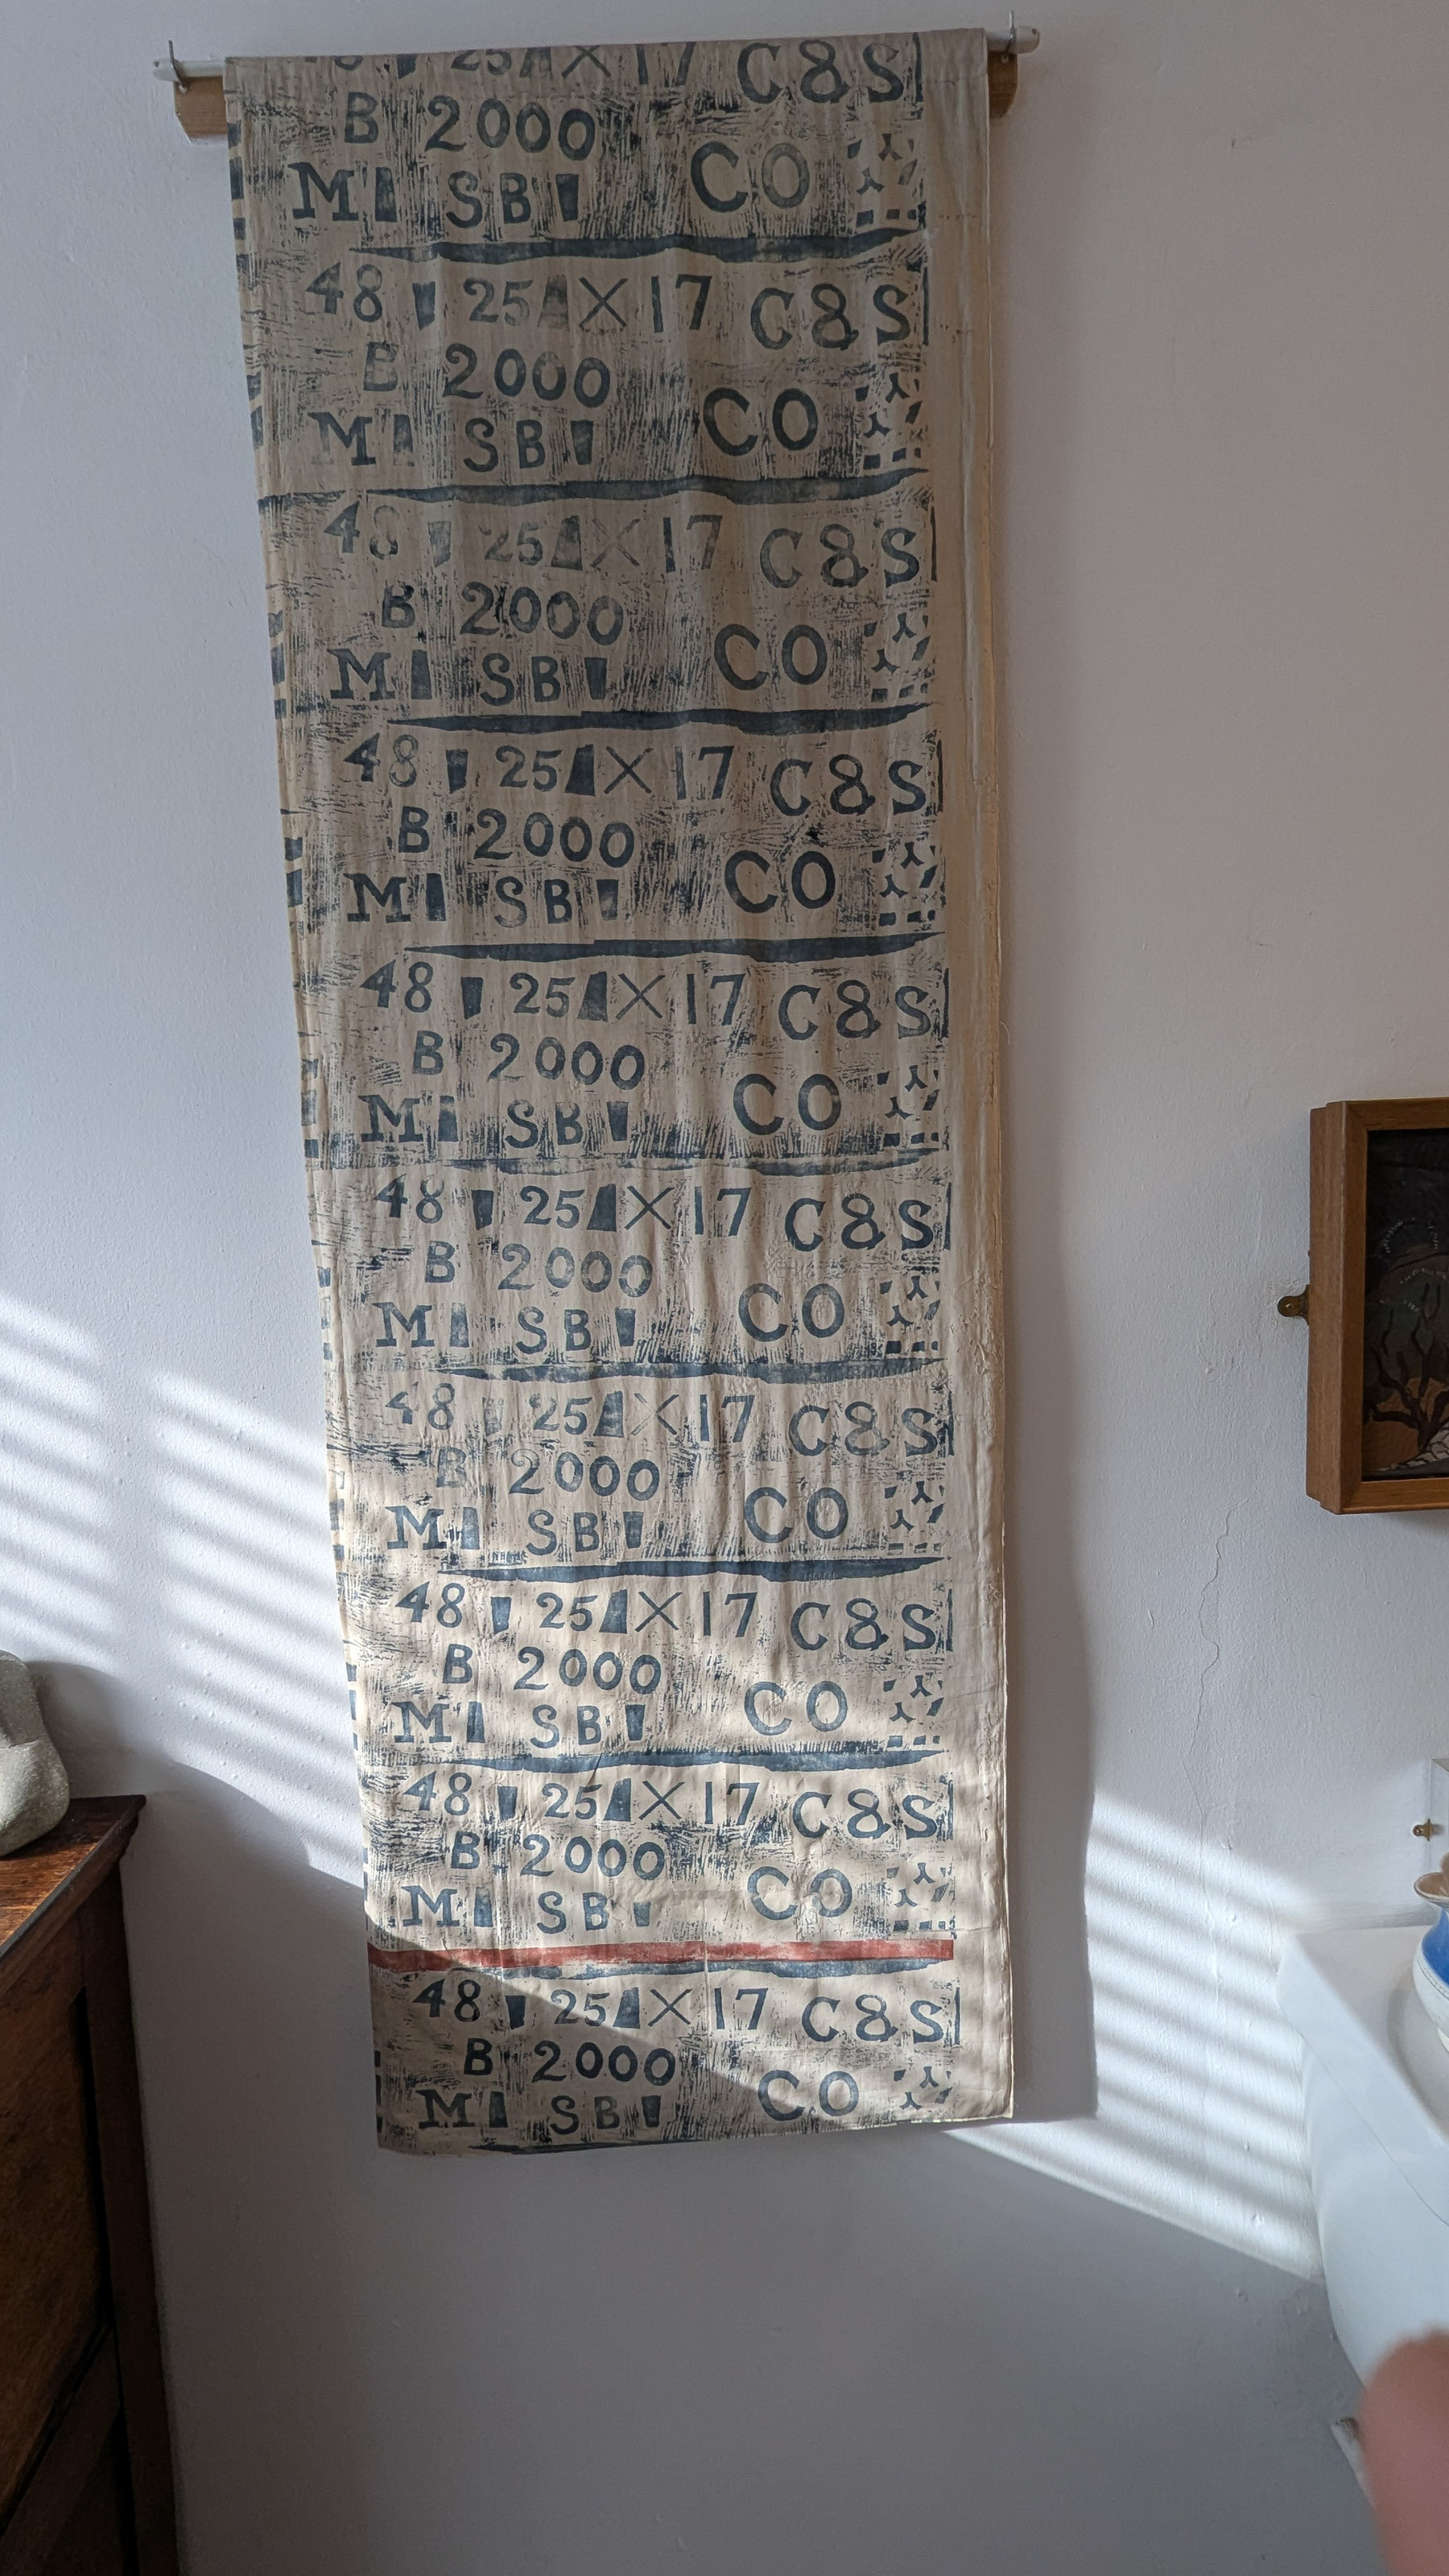 8 25 X 17 C&S
B 2000
M SB CO
48 25 X 17 C&S
B 2000
M SB CO
48 25 X 17 C&S
B 2000
M SB CO
48 25 X 17 C&S
B 2000
M SB CO
48 25 X 17 C&S
B 2000
M SB CO
48 25 X 17 C&S
B 2000
M SB CO
48 25 X 17 C&S
B 2000
M SB CO
48 25 X 17 C&S
B 2000
M SB CO
48 25 X 17 C&S
B 2000
M SB CO
48 25 X 17 C&S
B 2000
M SB CO